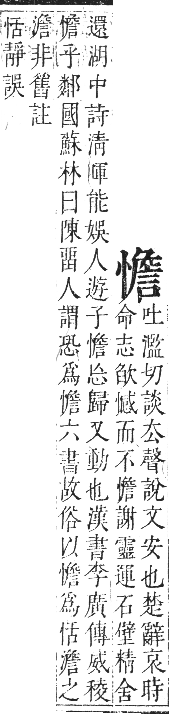 憺
吐濫切談去聲說文安也楚辭哀時
命志欿憾而不憺謝靈運石壁精舍
還湖中詩清暉能娛人遊子憺忘歸又動也漢書李廣傳威稜
憺乎鄰國蘇林曰陳留人謂恐為憺六書故俗以憺為恬澹之
澹非舊註
恬靜誤